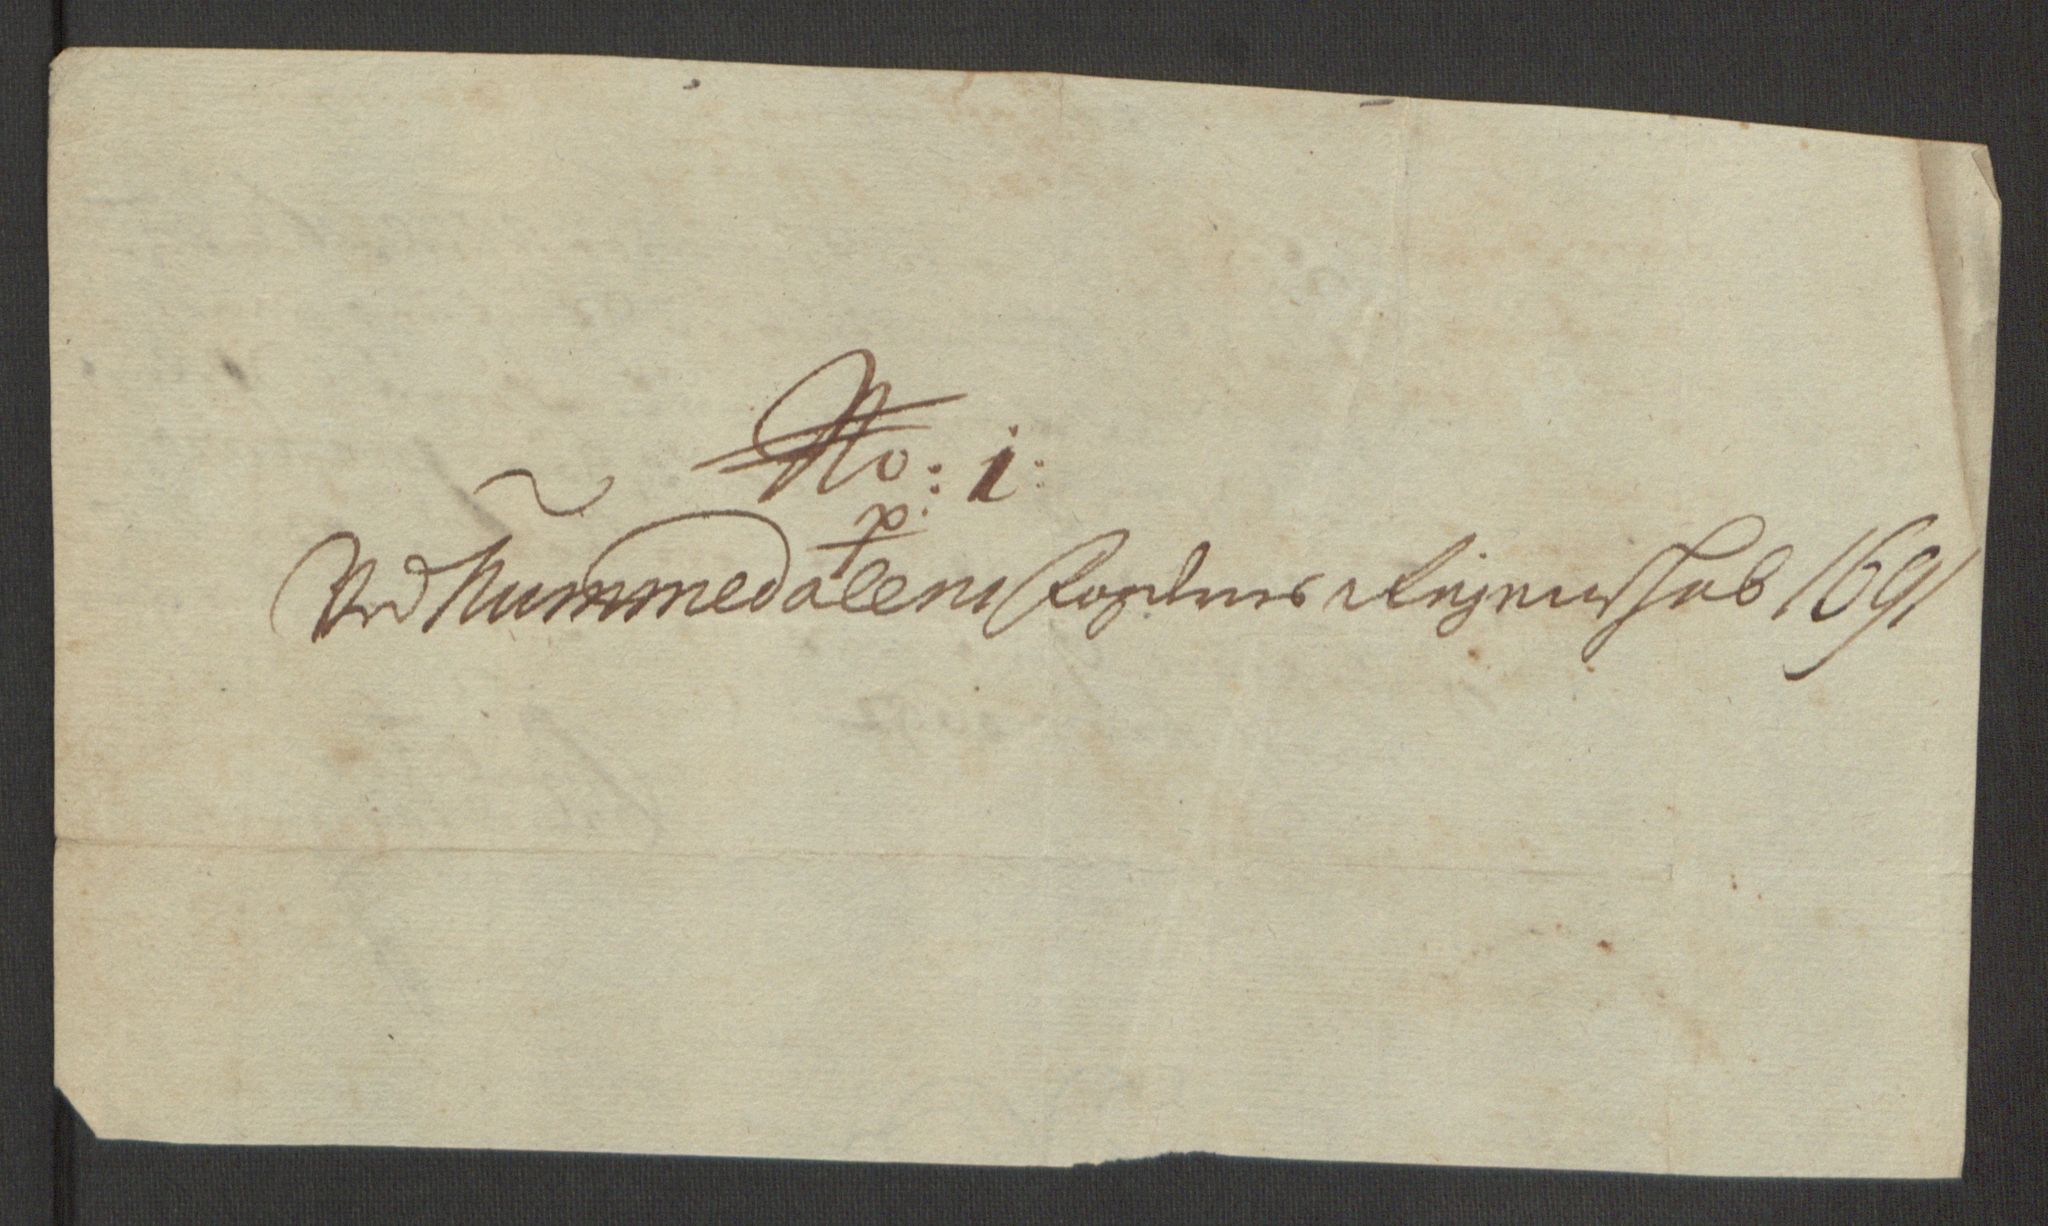 No: 1:
p:
Ved Nummedalens fogderies Regenschab 1691